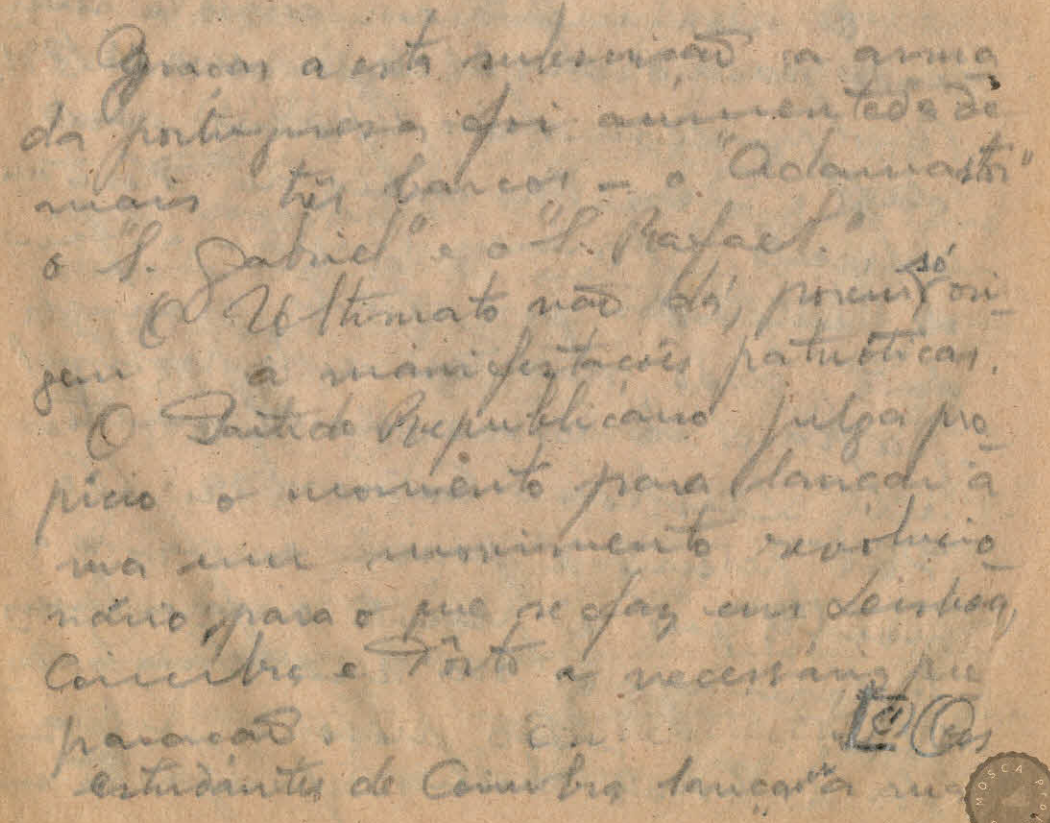 Graças a esta subscrição a arma
da portuguesa foi aumentada de
mais três barcos - o "Adamastor"
o "S. Gabriel" e o "S. Rafael."
O Ultimato não dá, porem, só ori-
gem a manifestações patrióticas.
O Partido Republicano julga pro-
pício o momento para lançar à
rua um movimento revolucio-
nário, para o que se faz em Lisboa,
Coimbra e Pôrto a necessária pre
paração. Os
estudantes de Coimbra lançam
MOSCA